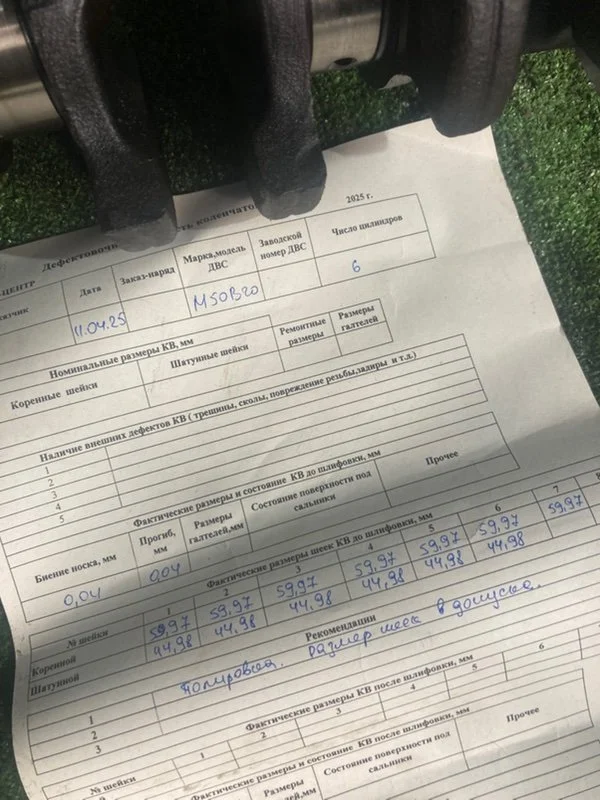 Дефектовочн ость коленчато 2025 г.
-ЦЕНТР Дата Заказ-наряд Марка,модель ДВС Заводской номер ДВС Число цилиндров
азчик 11.04.25 М50В20 6
Номинальные размеры КВ, мм Ремонтные размеры Размеры галтелей
Коренные шейки Шатунные шейки
Наличие внешних дефектов КВ ( трещины, сколы, повреждение резьбы,задиры и т.д.)
1
2
3
4
5
Фактические размеры и состояние КВ до шлифовки, мм
Биение носка, мм Прогиб, мм Размеры галтелей,мм Состояние поверхности под сальники Прочее
0,04 0,04
Фактические размеры шеек КВ до шлифовки, мм
№ шейки 1 2 3 4 5 6 7
Коренной 59,97 59,97 59,97 59,97 59,97 59,97 59,97
Шатунной 44,98 44,98 44,98 44,98 44,98 44,98
Рекомендации
1 Полировка. Размер шеек в допуске.
2
3
Фактические размеры КВ после шлифовки, мм
№ шейки 1 2 3 4 5 6
Фактические размеры и состояние КВ после шлифовки, мм
Размеры галтелей,мм Состояние поверхности под сальники Прочее